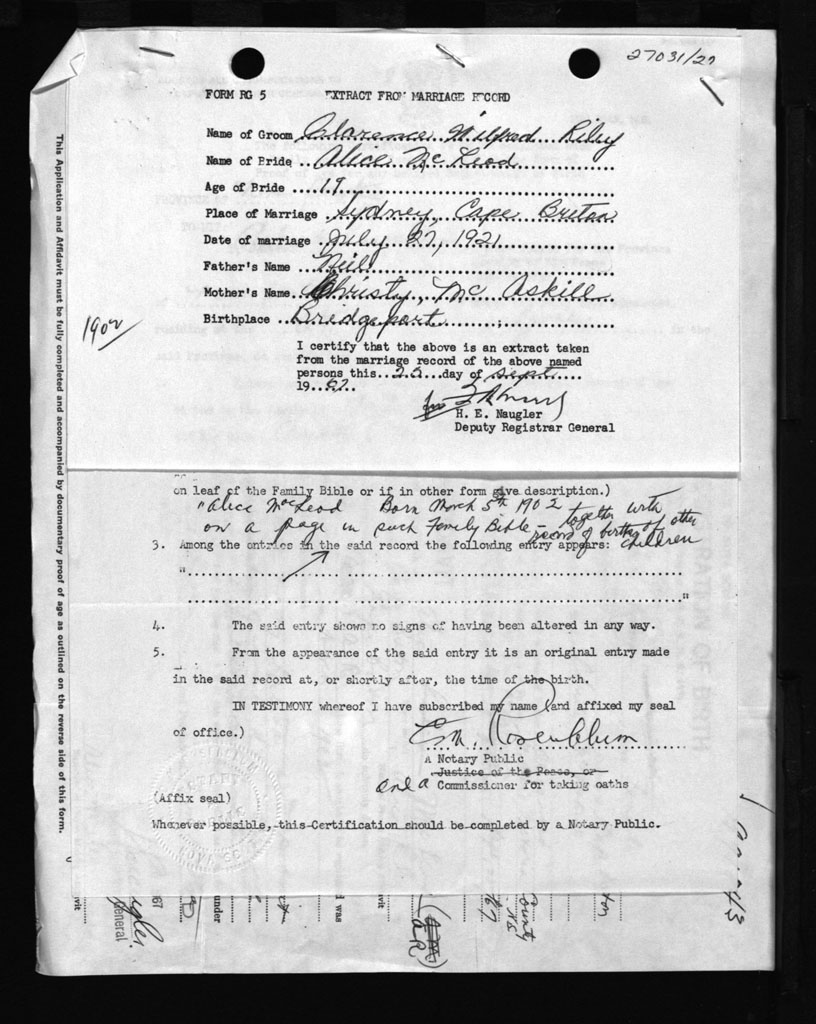 27031/27
FORM RG 5 EXTRACT FROM MARRIAGE RECORD
Name of Groom Clarence Wilfred Riley
Name of Bride Alice McLeod
Age of Bride 19
Place of Marriage Sydney, Cape Breton
Date of marriage July 27, 1921
Father's Name Neil
Mother's Name Christy Mc Askill
Birthplace Bridgeport
I certify that the above is an extract taken
from the marriage record of the above named
persons this 25 day of Sept.
19 67
H. E. Naugler
Deputy Registrar General
This Application and Affidavit must be fully completed and accompanied by documentary proof of age as outlined on the reverse side of this form.
on leaf of the Family Bible or if in other form give description.)
"Alice MacLeod Born March 5th 1902
on a page in such Family Bible - together with
record of births of other
children
3. Among the entries in the said record the following entry appears:
"
"
4. The said entry shows no signs of having been altered in any way.
5. From the appearance of the said entry it is an original entry made
in the said record at, or shortly after, the time of the birth.
IN TESTIMONY whereof I have subscribed my name and affixed my seal
of office.)
A Notary Public
Justice of the Peace, or
and a Commissioner for taking oaths
(Affix seal)
Whenever possible, this Certification should be completed by a Notary Public.
RATION OF BIRTH
General.
under
was
County